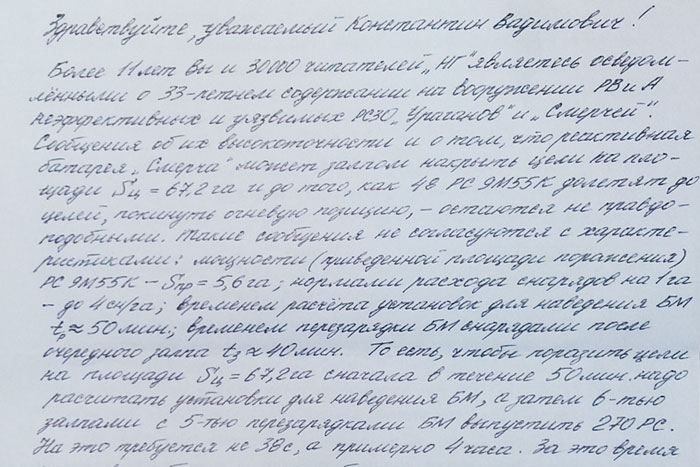 Здравствуйте, уважаемый Константин Вадимович!
Более 11 лет Вы и 30000 читателей „НГ" являетесь осведом-
лёнными о 33-летнем содержании на вооружении РВ и А
неэффективных и уязвимых РСЗО „Ураганов" и „Смерчей".
Сообщения об их высокоточности и о том, что реактивная
батарея „Смерча" может залпом накрыть цели на пло-
щади Sц = 67,2 га и до того, как 48 РС 9М55К долетят до
целей, покинуть огневую позицию, – остаются не правдо-
подобными. Такие сообщения не согласуются с характе-
ристиками: мощности (приведенной площади поражения)
РС 9М55К – Sпр = 5,6 га; нормами расхода снарядов на 1 га
– до 4 сн/га; временем расчёта установок для наведения БМ
tр ≈ 50 мин; временем перезарядки БМ снарядами после
очередного залпа tз ≈ 40 мин. То есть, чтобы поразить цели
на площади Sц = 67,2 га сначала в течение 50 мин. надо
расчитать установки для наведения БМ, а затем 6-тью
залпами с 5-тью перезарядками БМ выпустить 270 РС.
На это требуется не 38с, а примерно 4 часа. За это время